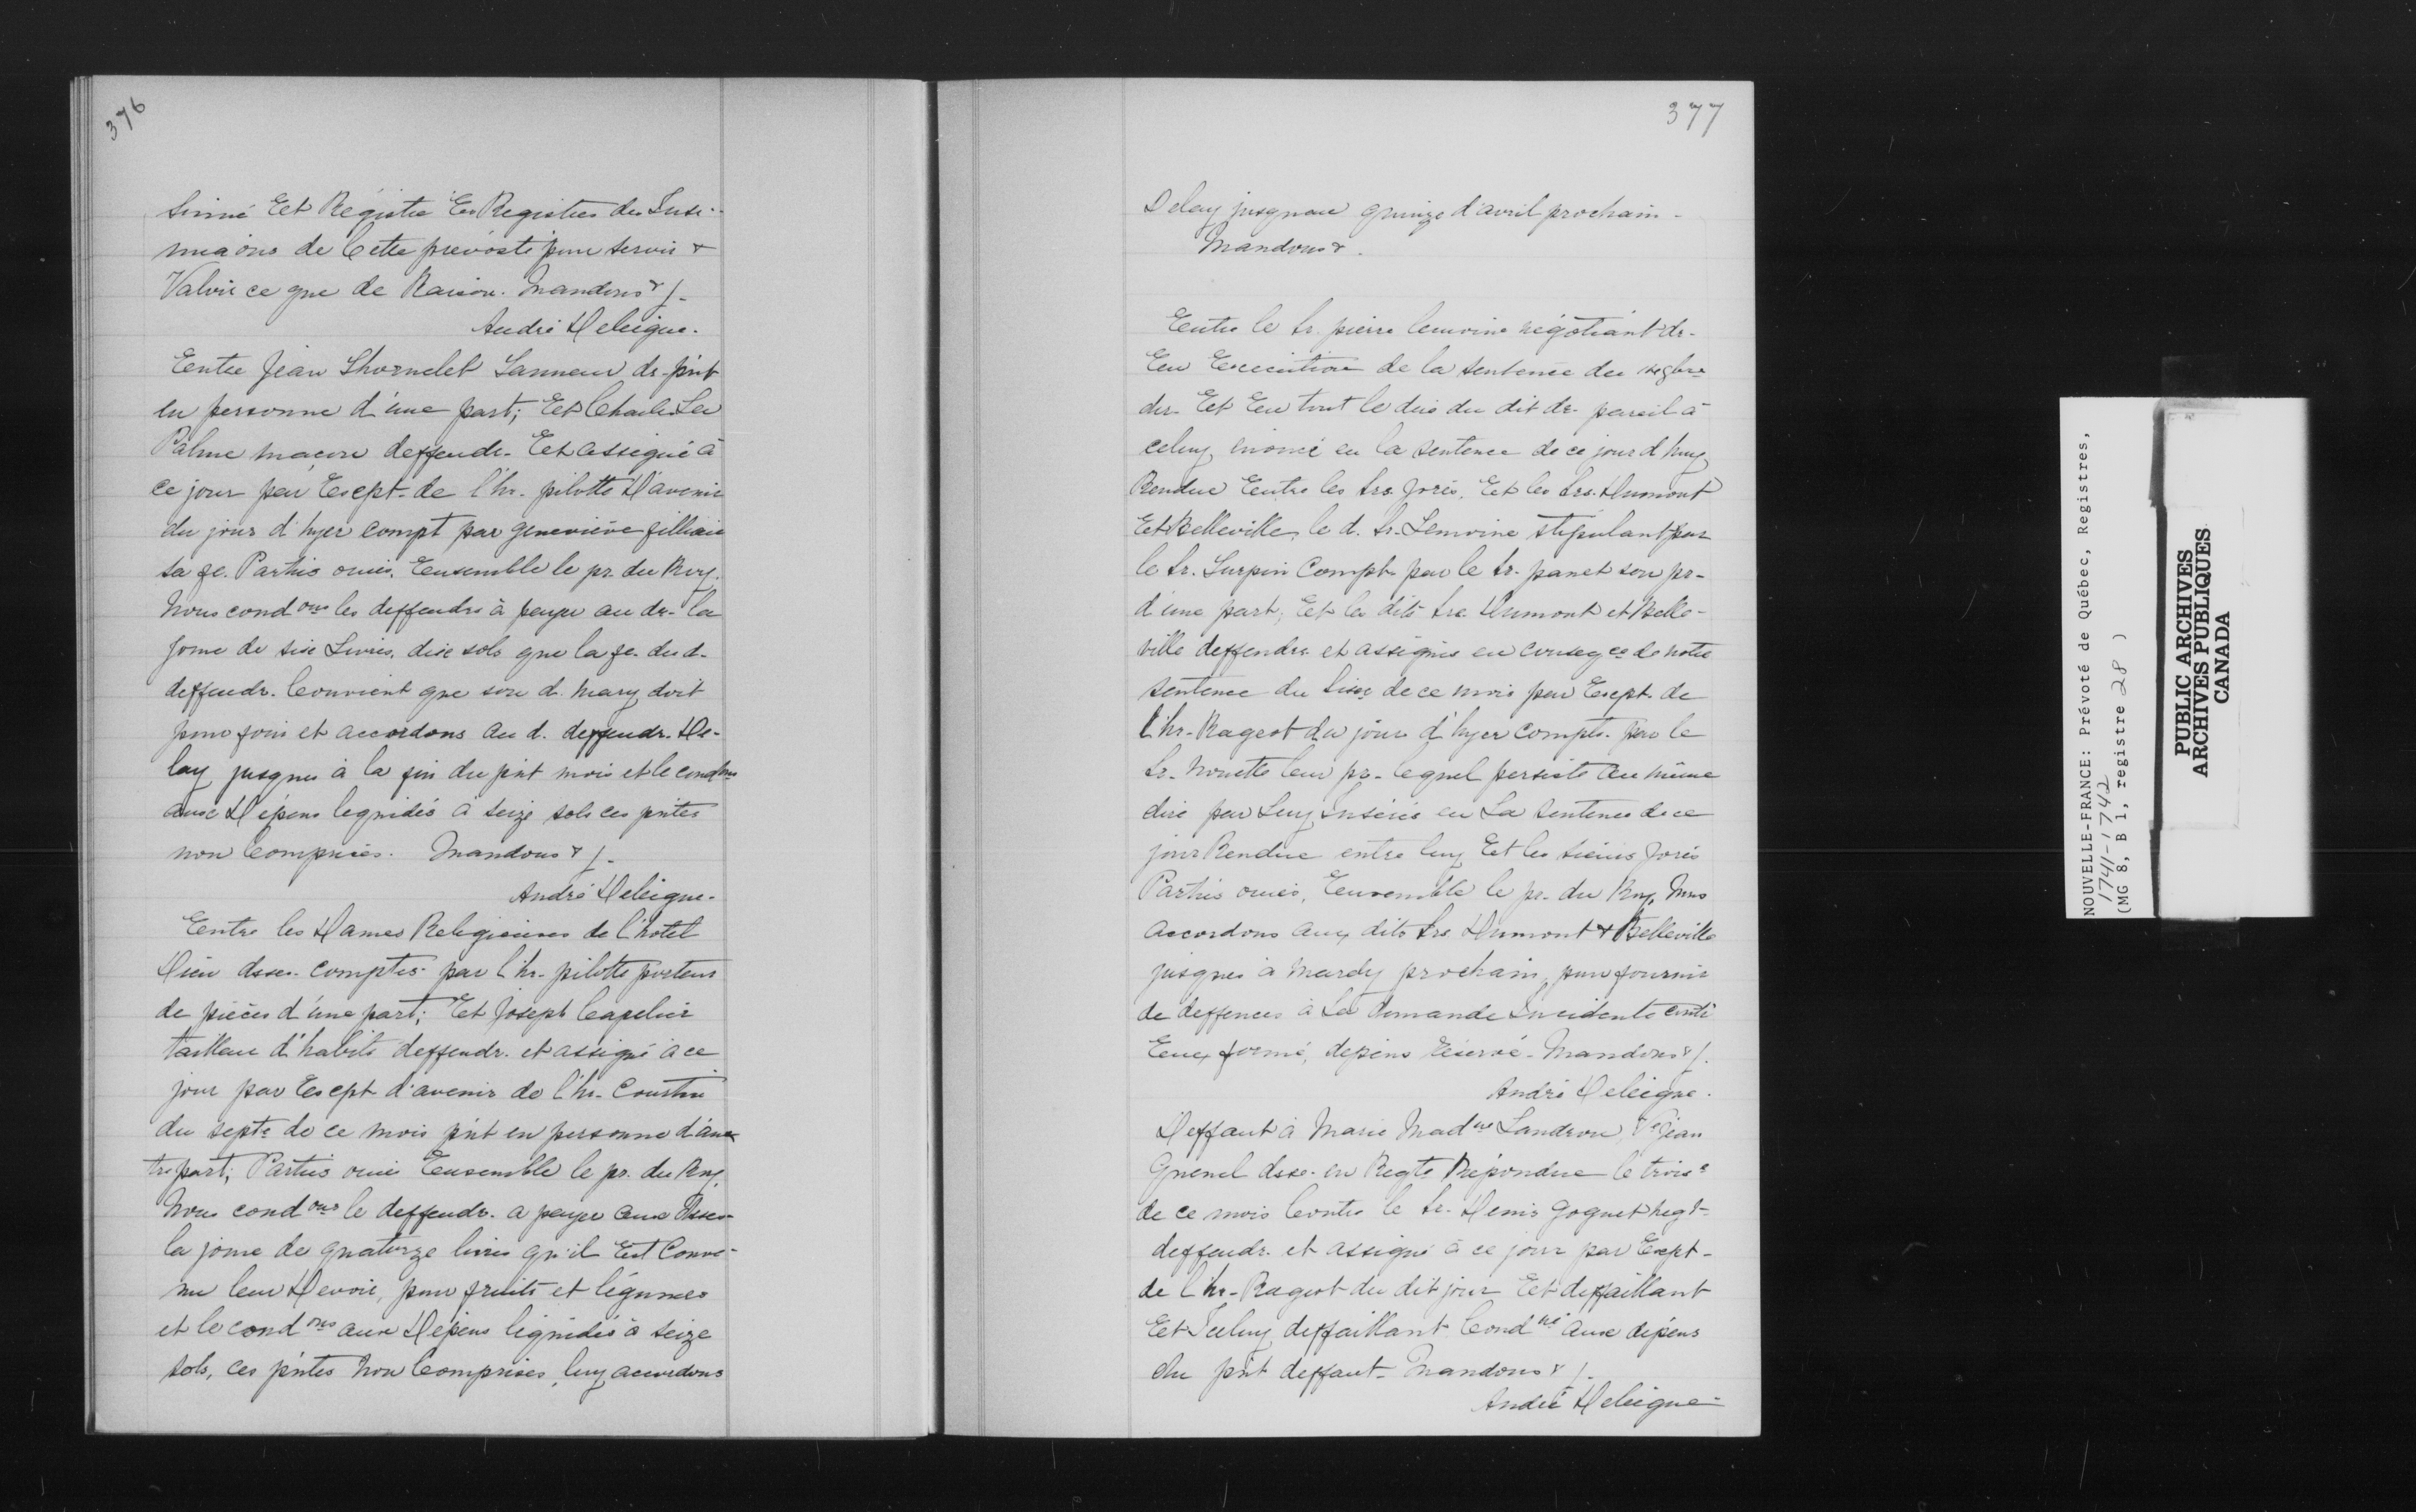 376
sinué Et Régistré Es Registres des Insi-
nuaons de Cette prevosté pour servir &
Valoir ce que de Raison. Mandons & /.
André Deleigne.
Entre Jean Thornelet Tanneur dr. pnt
en personne d'une part; Et Charles La
Palme maçon deffendr. Et assigné à
ce jour par Exept. de l'hr. pilotte D'avenir
du jour d'hyer compt par geneviève
sa fe. Parties ouies, Ensemble le pr. du Roy.
Nous condons les deffendrs à payer au dr. la
some de six Livres, dix sols que la fe. du d.
deffendr. Convient que son d. mary doit
pour foin et accordons au d. deffendr. De-
lay jusques à la fin du pnt mois et le condons
aux Dépens liquidés à seize sols ces pntes
non Comprises. Mandons & /.
André Deleigne.
Entre les Dames Religieuses de l'hotel
Dieu dsses. comptes. par l'hr. pilotte porteur
de pièces d'une part; Et Joseph Capelier
tailleur d'habits deffendr. et assigné à ce
jour par Exept d'avenir de l'hr. Coustin
du septe de ce mois pnt en personne d'au-
tre part; Parties ouies Ensemble le pr. du Roy.
Nous condons le deffendr. a payer aux dsses
la some de quatorze livres qu'il Est Conve-
nu leur Devoir, pour fruits et légumes
et le condons aux Dépens liquidés à seize
sols, ces pntes Non Comprises, luy accordons
377
Delay jusqu'au quinze d'avril prochain.
Mandons &.
Entre le Sr. pierre lemoine négotiant dr.
En Execution de la sentence du
der. Et En tout le dire du dit dr. pareil à
celuy enoncé en la sentence de ce jour d'huy
Rendue Entre les Srs. Jorés, Et les Srs. Dumont
Et Belleville, le d. Sr. Lemoine stipulant pour
le Sr. Turpin Compt. par le Sr. panet son pr.
d'une part; Et les dits Srs. Dumont et Belle-
ville deffendrs. et assignés en conseqce de notre
sentence du Sixe de ce mois par Exept. de
l'hr. Rageot du jour d'hyer compts. par le
Sr. Nouette leur pr. lequel persiste Au même
dire par Luy Inséré en La sentence de ce
jour Rendue entre luy Et les sieurs Jorés
Parties ouies, Ensemble le pr. du Roy, Nous
accordons aux dits Srs. Dumont & Belleville
jusques à Mardy prochain, pour fournir
de deffences à La demande Incidente contre
Eux formé, depens réservé. Mandons & /.
André Deleigne.
Deffaut à Marie Madne Landron, Ve Jean
Gnenel dsse. en Reqte Répondue le troise
de ce mois Contre le Sr. Denis Goguet negt.
deffendr. et assigné à ce jour par Exept.
de l'hr. Rageot du dit jour Et deffaillant
Et Iceluy deffaillant Condné aux depens
du pnt deffaut. Mandons & /.
André Deleigne
NOUVELLE-FRANCE: Prévoté de Québec, Registres,
1741-1742
(MG 8, B 1, registre 28 )
PUBLIC ARCHIVES
ARCHIVES PUBLIQUES
CANADA